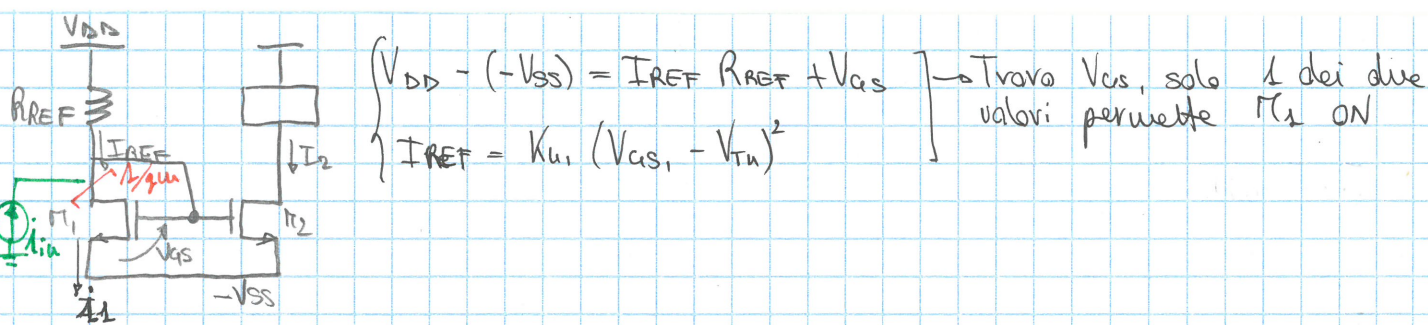 VDD
RREF
IREF
1/gm
I2
M1
M2
iin
VGS
i1
-VSS
VDD - (-VSS) = IREF RREF + VGS
IREF = Kn1 (VGS1 - VTn)²
→ Trovo VGS, solo 1 dei due
valori permette M1 ON